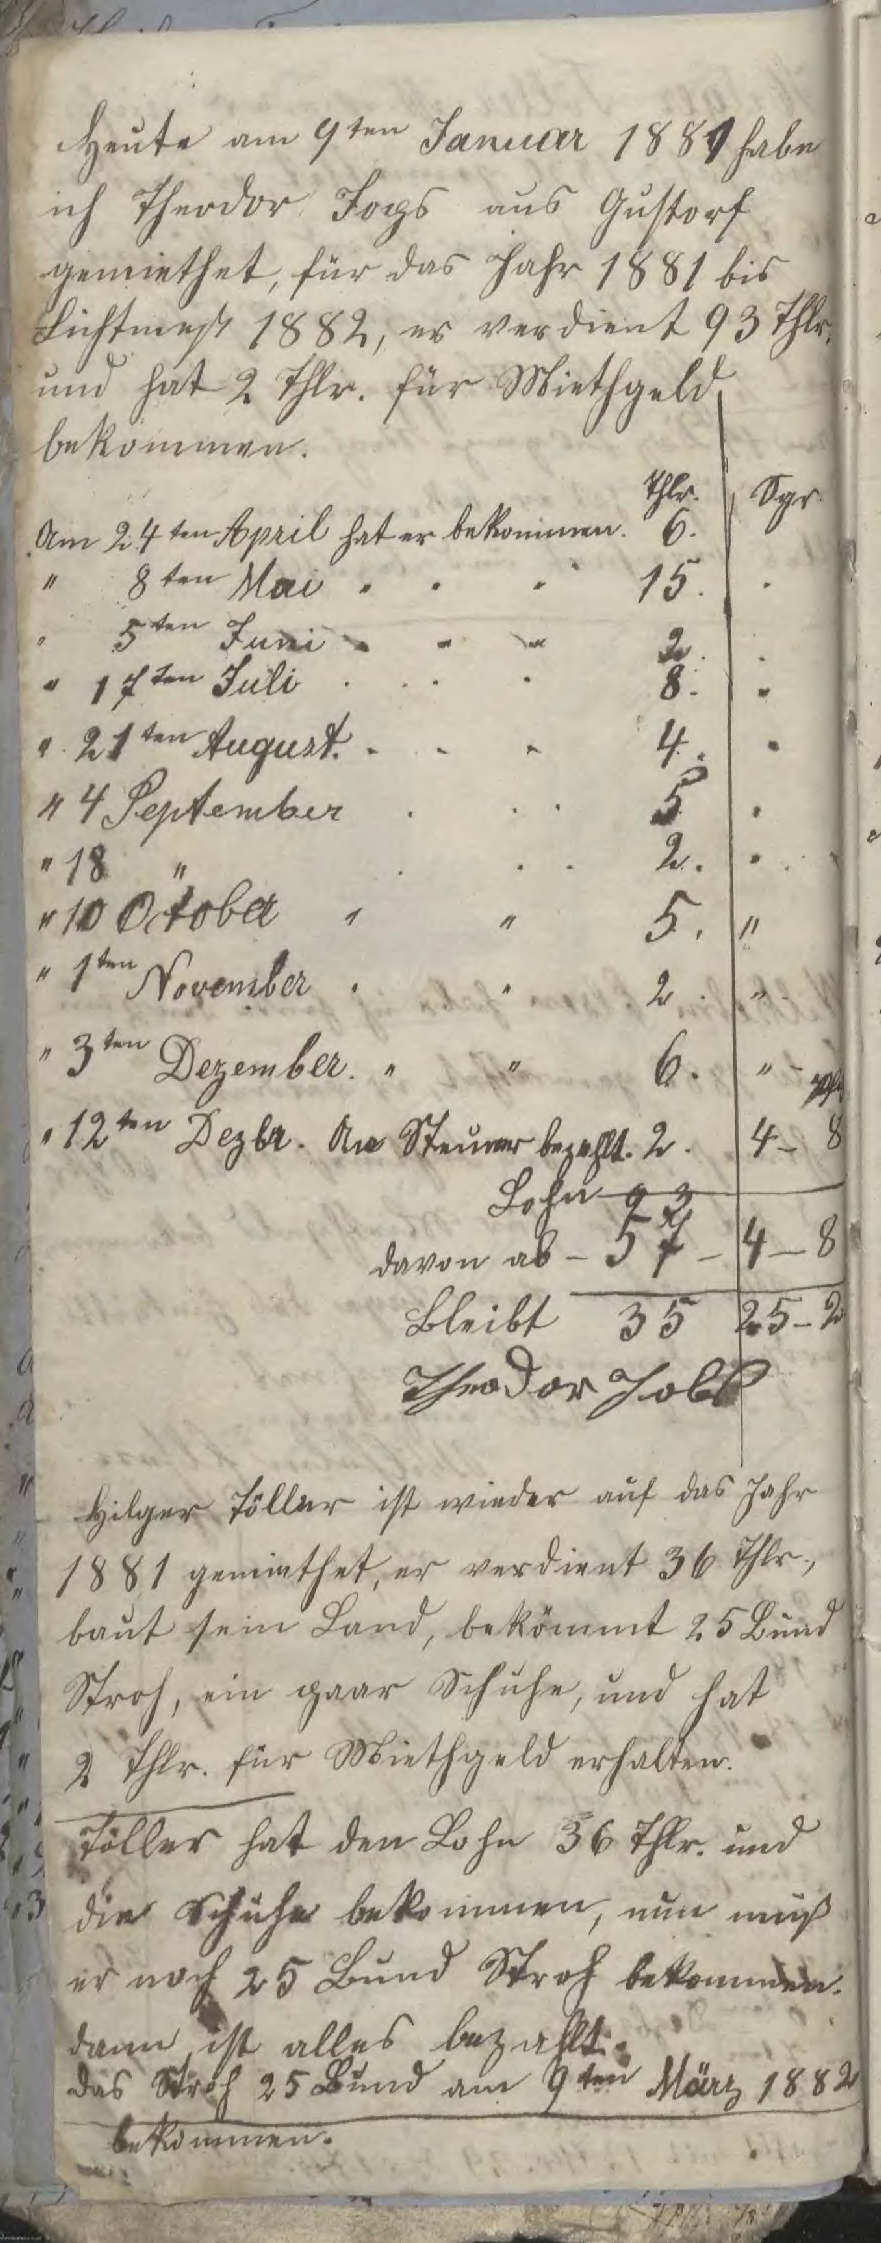 Heute am 9ten Januar 1881 habe
ich Theodor Jops aus Gustorf
gemiethet, für das Jahr 1881 bis
Lichtmeß 1882, er verdient 93 Thlr.
und hat 2 Thlr. für Miethgeld
bekommen.
Thlr. Sgr.
Am 24ten April hat er bekommen. 6.
" 8ten Mai . . . 15. .
" 5ten Juni " " " 2. .
" 17ten Juli . . . 8. "
" 21ten August. . . . 4. .
" 4 September . . . 5 .
" 18 " . . . 2. .
" 10 October " " 5. "
" 1ten November . . 2. "
" 3ten Dezember. " " 6. "
" 12ten Dezbr. An Steuer bezahlt. 2. 4 - 8
Lohn 93
davon ab - 57 - 4 - 8
Bleibt 35 25 - 2
Theodor Jobs
Hilger Töller ist wieder auf das Jahr
1881 gemiethet, er verdient 36 Thlr.,
baut sein Land, bekömmt 25 Bund
Stroh, ein paar Schuhe, und hat
2 Thlr. für Miethgeld erhalten.
Töller hat den Lohn 36 Thlr. und
die Schuhe bekommen, nun muß
er noch 25 Bund Stroh bekommen.
dann ist alles bezahlt.
das Stroh 25 Bund am 9ten März 1882
bekommen.